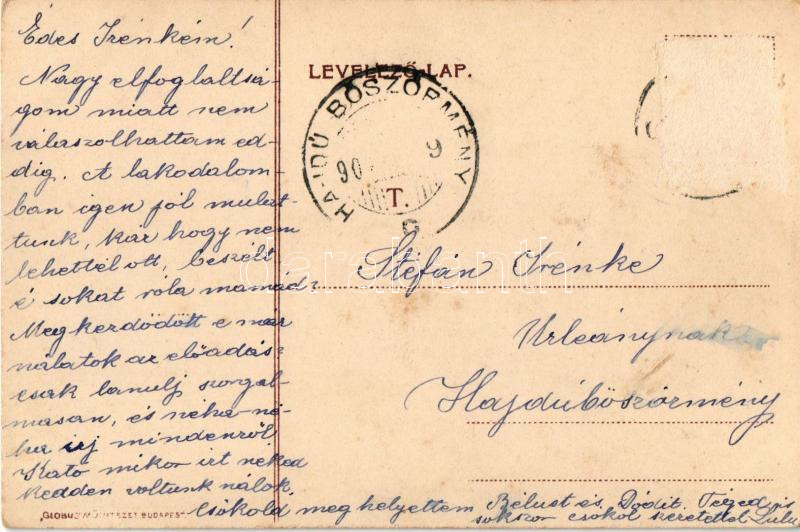 Édes Irénkém!
Nagy elfoglaltsá-
gom miatt nem
válaszolhattam ed-
dig. A lakodalom-
ban igen jól mulat-
tunk, kár hogy nem
lehettél ott, beszélt
é sokat rola mamád?
Megkezdödött e már
nálatok az előadás?
csak tanulj szorgal-
masan, és néha-né-
ha irj mindenről.
Kató mikor irt neked
kedden voltunk nálok.
Csókold meg helyettem Bélust és Dódit. Téged is
sokszor csókol szeretettel Lulu
LEVELEZŐ-LAP.
HAJDÚ BÖSZÖRMÉNY
90 9
T.
Stefán Irénke
Urleánynak
Hajdúböszörmény
GLOBUS MŰINTÉZET BUDAPEST
darabanth